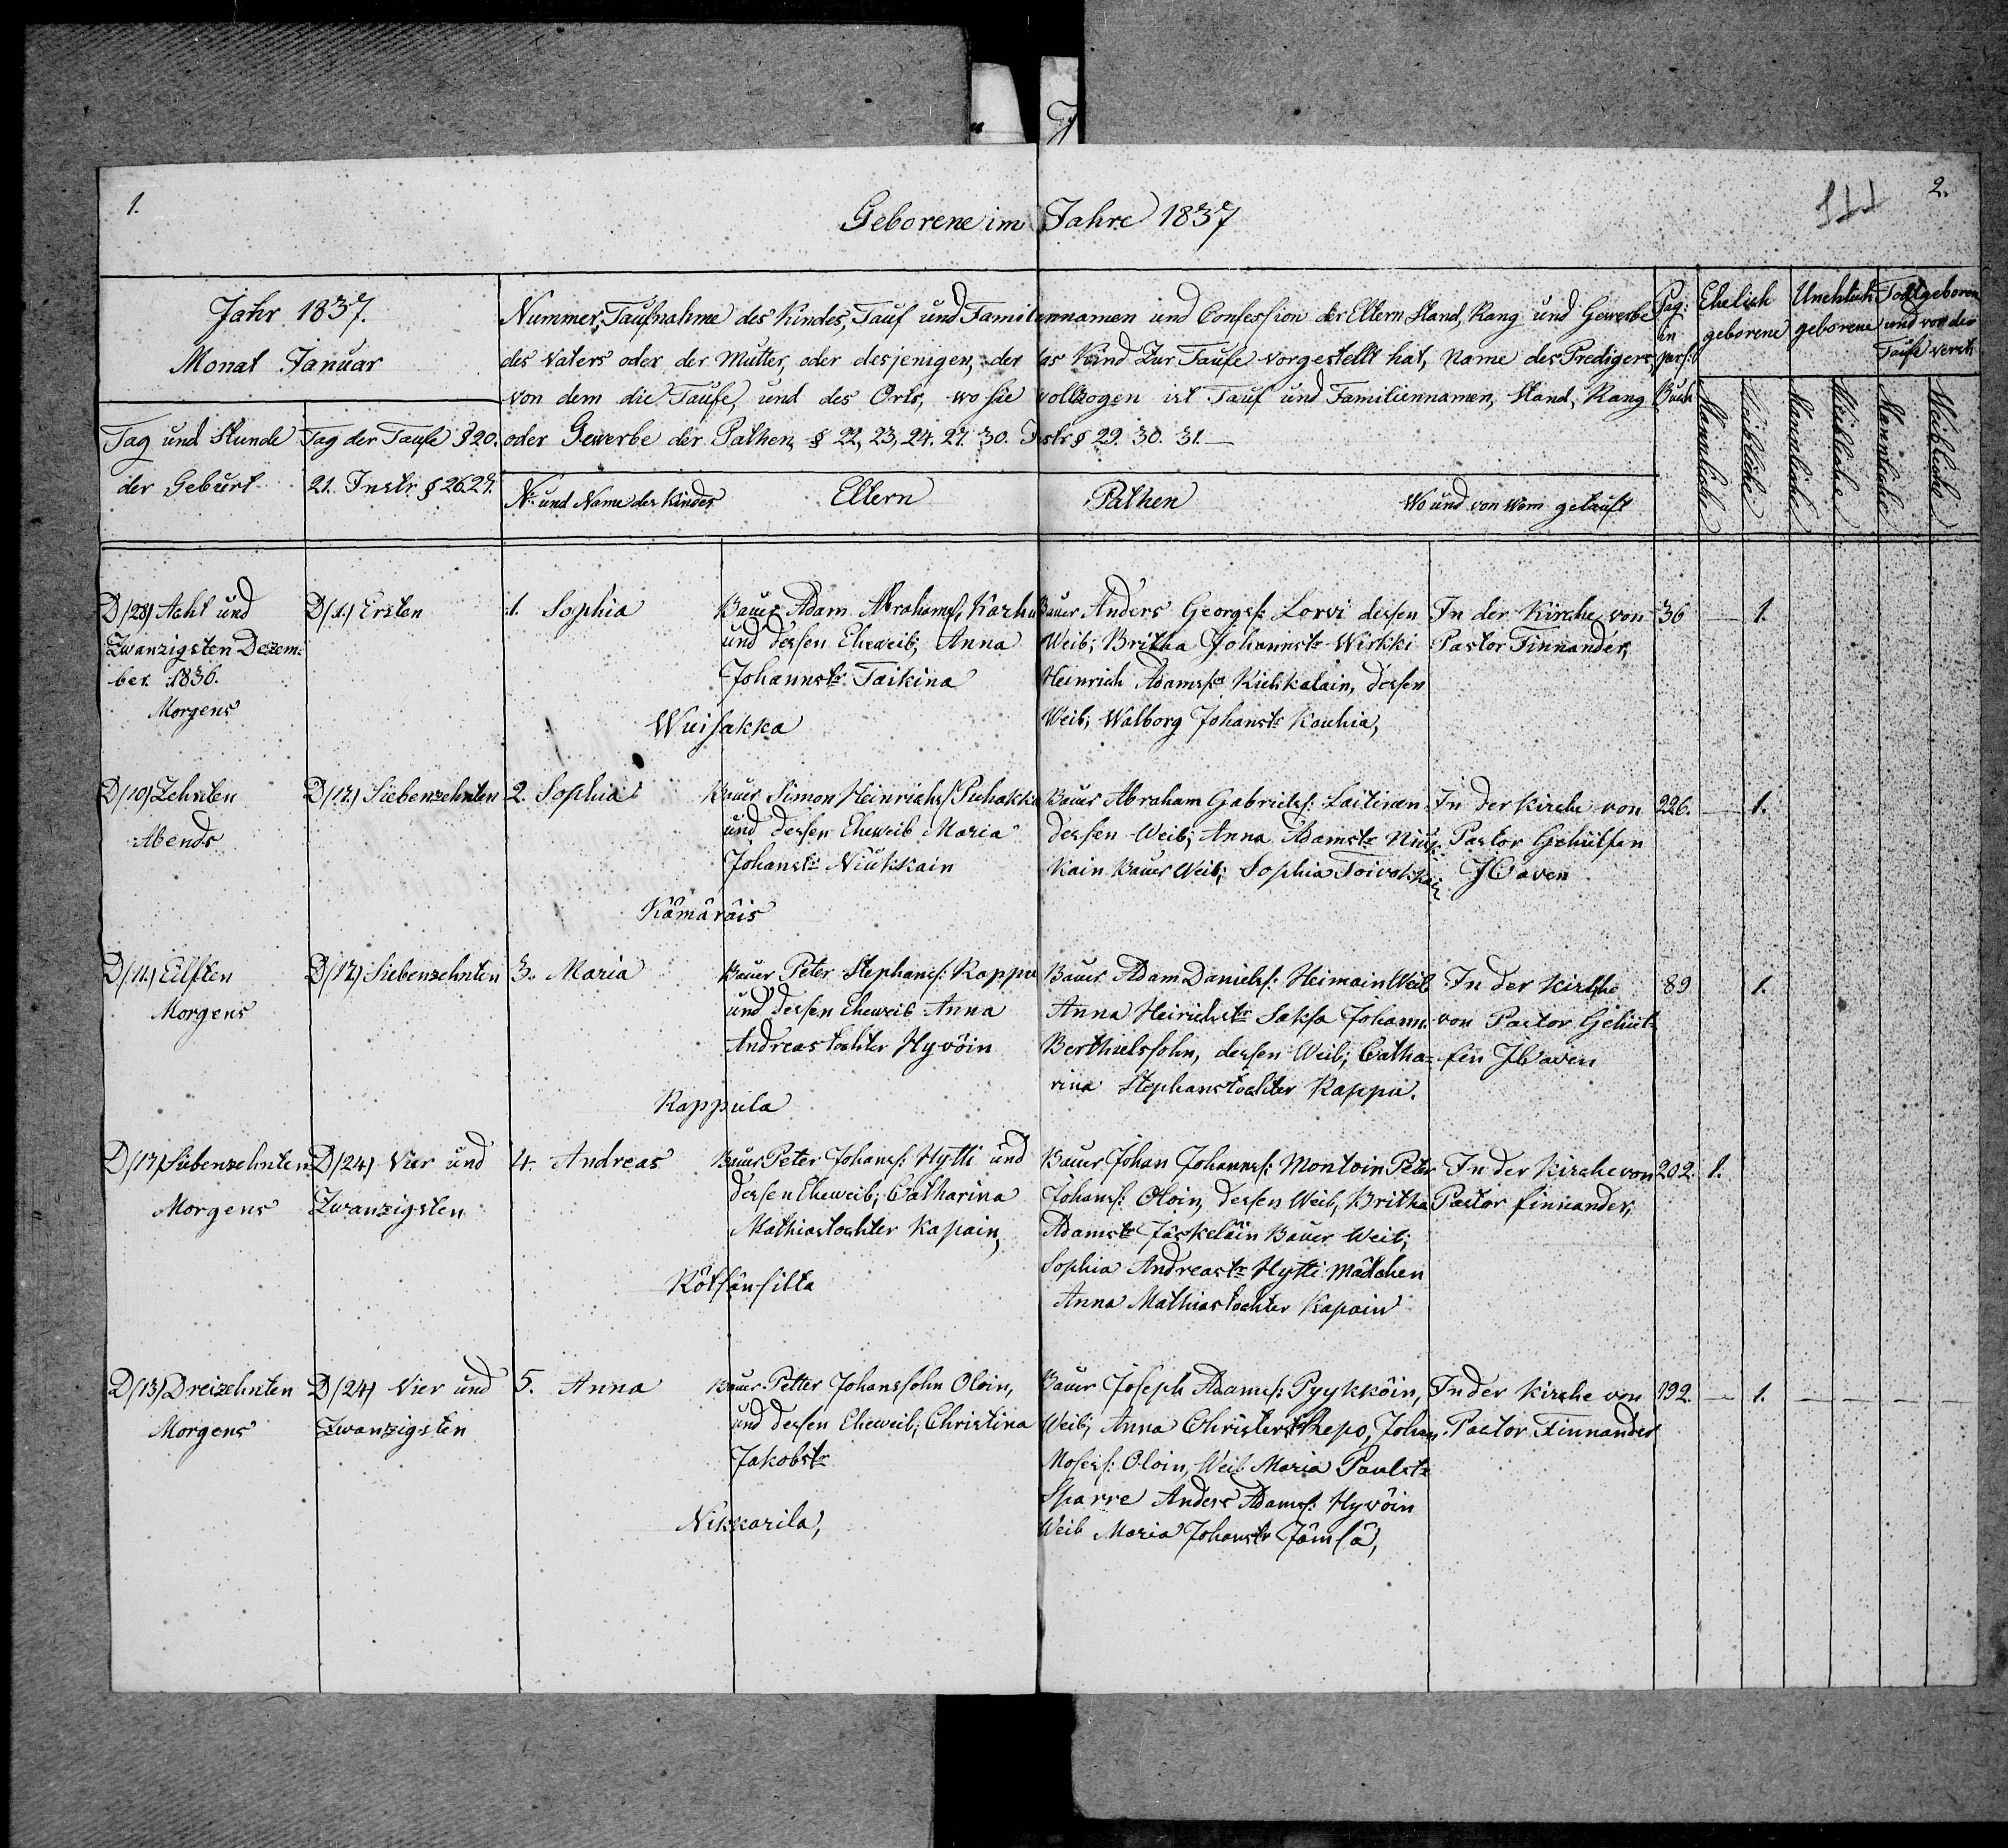 1.
2.
111
Geborene im Jahre 1837
Jahr 1837.
Monat Januar
Tag und Stunde
der Geburt
Tag der Taufe § 20.
21. Instr. § 26.27.
Nummer, Taufnahme des Kindes, Tauf und Familiennamen und Confession der Eltern Stand, Rang und Gewerbe
des Vaters oder der Mutter, oder desjenigen, der das Kind zur Taufe vorgestellt hat, Name des Predigers,
von dem die Taufe, und des Orts, wo sie vollzogen ist Tauf und Familiennamen, Stand, Rang
oder Gewerbe der Pathen, § 22, 23, 24. 27. 30. Instr § 29. 30. 31.
No und Name des Kindes
Eltern
Pathen
Wo und von wem getauft
Pag:
in
pers:
Buch
Ehelich
geborene
Unehlich
geborene
Todtgeboren
und vor der
Taufe verst:
Männliche
Weibliche
Männliche
Weibliche
Männliche
Weibliche
D/28) Acht und
Zwanzigsten Dezem-
ber 1836.
Morgens
D/1.) Ersten
1. Sophia
Bauer Adam Abrahamss: Karhu
und dessen Eheweib; Anna
Johannstr Taikina
Wuisakka
Bauer Anders Georgss: Lorvi dessen
Weib; Britha Johannstr Wirkki
Heinrich Adamss: Kiehkalain, dessen
Weib; Walborg Johanstr Kouhia,
In der Kirche von
Pastor Finnander,
36 — 1.
D/10) Zehnten
Abends
D/17.) Siebenzehnten
2. Sophia
Bauer Simon Heinrichss: Puhakka
und dessen Eheweib Maria
Johanstr Niukkain
Kämäräis
Bauer Abraham Gabrielss: Laitinen
dessen Weib; Anna Adamstr Niuk-
kain Bauer Weib; Sophia Toivokkain
In der Kirche von
Pastor Gehülfen
J Caven
226. — 1.
D/11.) Eilften
Morgens
D/17) Siebenzehnten
3. Maria
Bauer Peter Stephanss: Kappu
und dessen Eheweib Anna
Andreastochter Hyvöin
Kappula
Bauer Adam Danielss: Heimain Weib
Anna Heirichstr Saksa Johann
Berthielssohn, dessen Weib; Catha-
rina Stephanstochter Kappu.
In der Kirche
von Pastor Gehül-
fen J Caven
89 1.
D/17) Siebenzehnten
Morgens
D/24) Vier und
Zwanzigsten
4. Andreas
Bauer Peter Johanss: Hytti und
dessen Eheweib; Catharina
Mathiastochter Kapain,
Kötsänsilta
Bauer Johan Johannss: Montoin Peter
Johanss: Oloin, dessen Weib, Britha
Adamstr Jäskeläin Bauer Weib;
Sophia Andreastr Hytti Mädchen
Anna Mathiastochter Kapain
In der Kirche von
Pastor Finnander,
202. 1.
D/13) Dreizehnten
Morgens
D/24) Vier und
Zwanzigsten
5. Anna
Bauer Petter Johanssohn Oloin,
und dessen Eheweib; Christina
Jakobstr
Nikkarila,
Bauer Joseph Adamss: Pyykköin,
Weib; Anna Christerstr Repo, Johan
Mosess: Oloin, Weib Maria Paulstr
Sparre Anders Adamss: Hyvöin
Weib Maria Johanstr Jämsä,
In der Kirche von
Pastor Finnander
192. — 1. — — — —